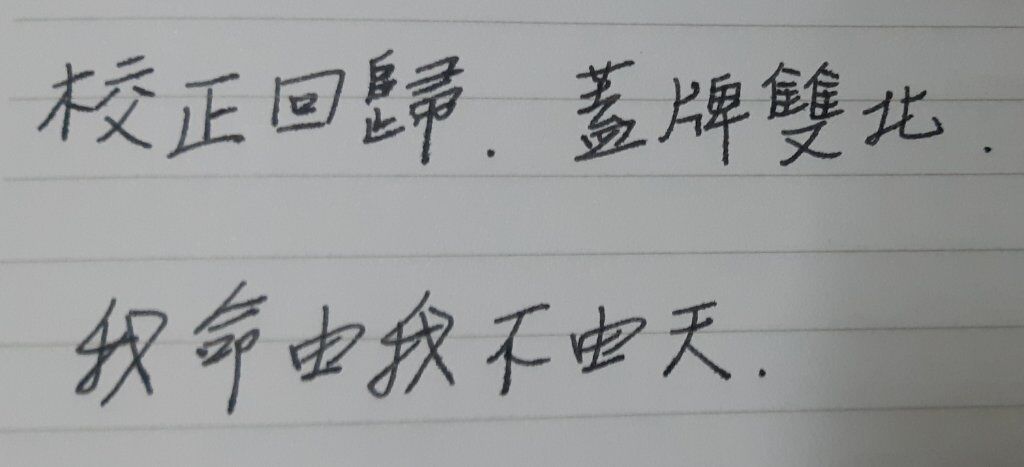 校正回歸. 蓋牌雙北.
我命由我不由天.